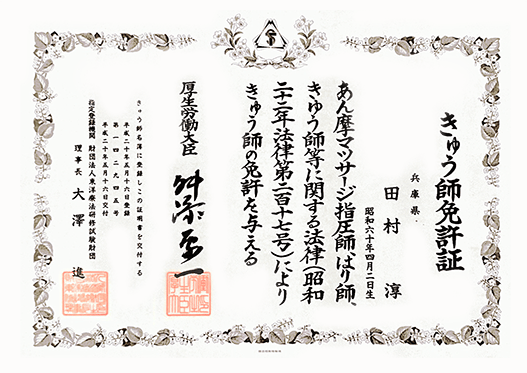 きゅう師免許証
兵庫県
田村 淳
昭和六十年四月二日生
あん摩マッサージ指圧師、はり師、
きゅう師等に関する法律(昭和
二十二年法律第二百十七号)により
きゅう師の免許を与える
厚生労働大臣 舛添要一
きゅう師名簿に登録しこの証明書を交付する
平成二十年五月十六日登録
第一四二九四五号
平成二十年五月十六日交付
指定登録機関 財団法人東洋療法研修試験財団
理事長 大澤 進